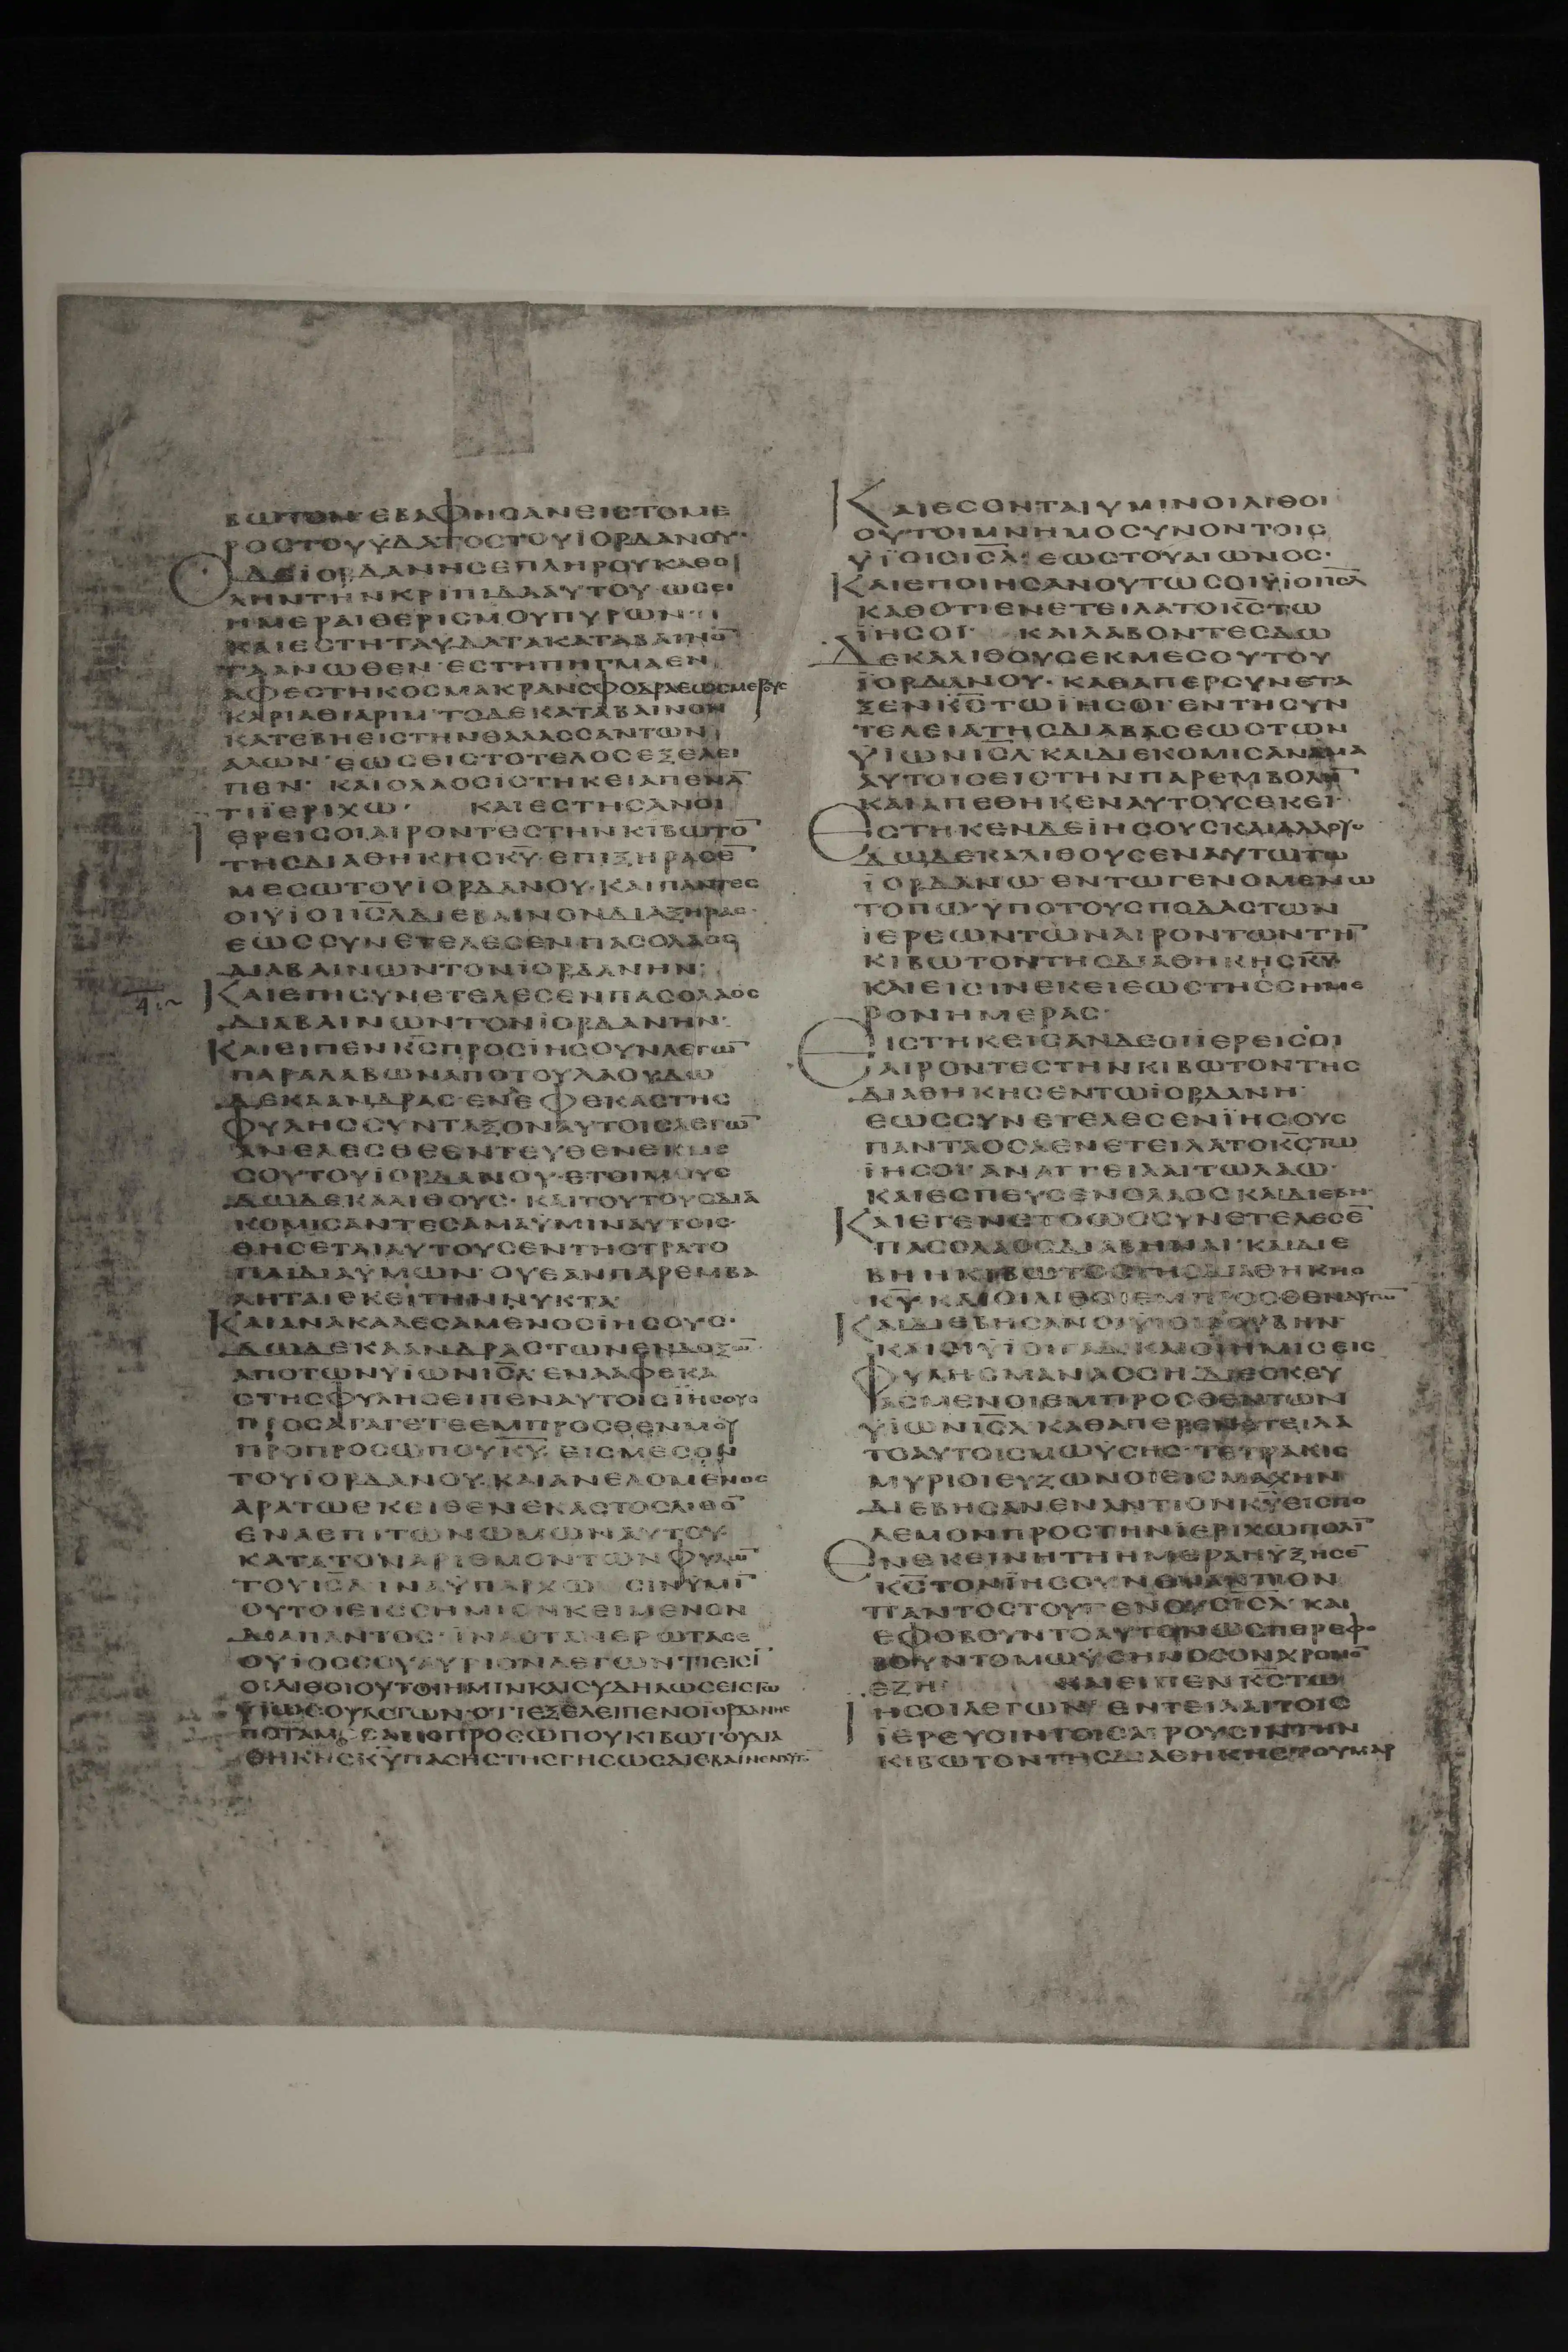 ΒΩΤΟΝ·ΕΒΑΦΗCΑΝΕΙCΤΟΜΕ
ΡΟCΤΟΥΫΔΑΤΟCΤΟΥΪΟΡΔΑΝΟΥ·
ΟΔΕΪΟΡΔΑΝΗCΕΠΛΗΡΟΥΚΑΘΟ
ΛΗΝΤΗΝΚΡΙΠΙΔΑΑΥΤΟΥ·ΩCΕΙ
ΗΜΕΡΑΙΘΕΡΙCΜΟΥΠΥΡΩΝ·
ΚΑΙΕCΤΗΤΑΥΔΑΤΑΚΑΤΑΒΑΙΝΟ̅
ΤΑΑΝΩΘΕΝ·ΕCΤΗΠΗΓΜΑΕΝ
ΑΦΕCΤΗΚΟCΜΑΚΡΑΝCΦΟΔΡΑΕΩCΜΕΡΟΥC
ΚΑΡΙΑΘΙΑΡΙΜ·ΤΟΔΕΚΑΤΑΒΑΙΝΟΝ
ΚΑΤΕΒΗΕΙCΤΗΝΘΑΛΑCCΑΝΤΩΝ
ΑΛΩΝ·ΕΩCΕΙCΤΟΤΕΛΟCΕΞΕΛΕΙ
ΠΕΝ· ΚΑΙΟΛΑΟCΪCΤΗΚΕΙΑΠΕΝΑ̅
ΤΙΪΕΡΙΧΩ· ΚΑΙΕCΤΗCΑΝΟΙ
ΪΕΡΕΙCΟΙΑΙΡΟΝΤΕCΤΗΝΚΙΒΩΤΟ̅
ΤΗCΔΙΑΘΗΚΗCΚ̅Υ̅·ΕΠΙΞΗΡΑCΕ̅
ΜΕCΩΤΟΥΪΟΡΔΑΝΟΥ·ΚΑΙΠΑΝΤΕC
ΟΙΫΪΟΙΙ̅C̅Λ̅ΔΙΕΒΑΙΝΟΝΔΙΑΞΗΡΑC·
ΕΩCCΥΝΕΤΕΛΕCΕΝΠΑCΟΛΑΟC
ΔΙΑΒΑΙΝΩΝΤΟΝΪΟΡΔΑΝΗΝ·
ΚΑΙΕΠΗCΥΝΕΤΕΛΕCΕΝΠΑCΟΛΑΟC
ΔΙΑΒΑΙΝΩΝΤΟΝΪΟΡΔΑΝΗΝ·
ΚΑΙΕΙΠΕΝΚ̅C̅ΠΡΟCΪΗCΟΥΝΛΕΓΩ̅
ΠΑΡΑΛΑΒΩΝΑΠΟΤΟΥΛΑΟΥΔΩ
ΔΕΚΑΑΝΔΡΑC·ΕΝΕΦΕΚΑCΤΗC
ΦΥΛΗCCΥΝΤΑΞΟΝΑΥΤΟΙCΛΕΓΩ̅
ΑΝΕΛΕCΘΕΕΝΤΕΥΘΕΝΕΚΜΕ
CΟΥΤΟΥΪΟΡΔΑΝΟΥ·ΕΤΟΙΜΟΥC
ΔΩΔΕΚΑΛΙΘΟΥC·ΚΑΙΤΟΥΤΟΥCΔΙΑ
ΚΟΜΙCΑΝΤΕCΑΜΑΫΜΙΝΑΥΤΟΙC·
ΘΗCΕΤΑΙΑΥΤΟΥCΕΝΤΗCΤΡΑΤΟ
ΠΑΙΔΙΑΫΜΩΝ·ΟΥΕΑΝΠΑΡΕΜΒΑ
ΛΗΤΑΙΕΚΕΙΤΗΝΝΥΚΤΑ
ΚΑΙΑΝΑΚΑΛΕCΑΜΕΝΟCΪΗCΟΥC·
ΔΩΔΕΚΑΑΝΔΡΑCΤΩΝΕΝΔΟΞΩ̅
ΑΠΟΤΩΝΥΪΩΝΙ̅C̅Λ̅·ΕΝΑΑΦΕΚΑ
CΤΗCΦΥΛΗCΕΙΠΕΝΑΥΤΟΙCΪΗCΟΥC
ΠΡΟCΑΓΑΓΕΤΕΕΜΠΡΟCΘΕΝΜΟΥ
ΠΡΟΠΡΟCΩΠΟΥΚ̅Υ̅·ΕΙCΜΕCΟΝ
ΤΟΥΪΟΡΔΑΝΟΥ·ΚΑΙΑΝΕΛΟΜΕΝΟC
ΑΡΑΤΩΕΚΕΙΘΕΝΕΚΑCΤΟCΛΙΘΟ̅
ΕΝΑΕΠΙΤΩΝΩΜΩΝΑΥΤΟΥ
ΚΑΤΑΤΟΝΑΡΙΘΜΟΝΤΩΝΦΥΛΩ̅
ΤΟΥΙ̅C̅Λ̅ΙΝΑΫΠΑΡΧΩCΙΝΫΜΙ̅
ΟΥΤΟΙΕΙCCΗΜΙΟΝΚΕΙΜΕΝΟΝ
ΔΙΑΠΑΝΤΟC·ΪΝΑΟΤΑΝΕΡΩΤΑCΕ
ΟΥΪΟCCΟΥΑΥΡΙΟΝΛΕΓΩΝΤΙΕΙCΙ̅
ΟΙΛΙΘΟΙΟΥΤΟΙΗΜΙΝΚΑΙCΥΔΗΛΩCΕΙCΤΩ
ΫΪΩCΟΥΛΕΓΩΝ·ΟΤΙΕΞΕΛΕΙΠΕΝΟΪΟΡΔΑΝΗC
ΠΟΤΑΜΟCΑΠΟΠΡΟCΩΠΟΥΚΙΒΩΤΟΥΔΙΑ
ΘΗΚΗCΚ̅Υ̅ΠΑCΗCΤΗCΓΗCΩCΔΙΕΒΑΙΝΕΝΑΥΤΟ̅
ΚΑΙΕCΟΝΤΑΙΥΜΙΝΟΙΛΙΘΟΙ
ΟΥΤΟΙΜΝΗΜΟCΥΝΟΝΤΟΙC
ΫΪΟΙCΙ̅C̅Λ̅·ΕΩCΤΟΥΑΙΩΝΟC·
ΚΑΙΕΠΟΙΗCΑΝΟΥΤΩCΟΙΫΪΟΙΙ̅C̅Λ̅
ΚΑΘΟΤΙΕΝΕΤΕΙΛΑΤΟΚ̅C̅ΤΩ
ΪΗCΟΙ· ΚΑΙΛΑΒΟΝΤΕCΔΩ
ΔΕΚΑΛΙΘΟΥCΕΚΜΕCΟΥΤΟΥ
ΪΟΡΔΑΝΟΥ·ΚΑΘΑΠΕΡCΥΝΕΤΑ
ΞΕΝΚ̅C̅ΤΩΪΗCΟΙ·ΕΝΤΗCΥΝ
ΤΕΛΕΙΑΤΗCΔΙΑΒΑCΕΩCΤΩΝ
ΫΪΩΝΙ̅C̅Λ̅·ΚΑΙΔΙΕΚΟΜΙCΑΝΑΜΑ
ΑΥΤΟΙCΕΙCΤΗΝΠΑΡΕΜΒΟΛΗ̅
ΚΑΙΑΠΕΘΗΚΕΝΑΥΤΟΥCΕΚΕΙ·
ΕCΤΗΚΕΝΔΕΪΗCΟΥCΚΑΙΑΛΛΟΥC
ΔΩΔΕΚΑΛΙΘΟΥCΕΝΑΥΤΩΤΩ
ΪΟΡΔΑΝΩ·ΕΝΤΩΓΕΝΟΜΕΝΩ
ΤΟΠΩ·ΫΠΟΤΟΥCΠΟΔΑCΤΩΝ
ΪΕΡΕΩΝΤΩΝΑΙΡΟΝΤΩΝΤΗ̅
ΚΙΒΩΤΟΝΤΗCΔΙΑΘΗΚΗCΚ̅Υ̅·
ΚΑΙΕΙCΙΝΕΚΕΙΕΩCΤΗCCΗΜΕ
ΡΟΝΗΜΕΡΑC·
ΕΙCΤΗΚΕΙCΑΝΔΕΟΙΪΕΡΕΙCΟΙ
ΑΙΡΟΝΤΕCΤΗΝΚΙΒΩΤΟΝΤΗC
ΔΙΑΘΗΚΗCΕΝΤΩΪΟΡΔΑΝΗ·
ΕΩCCΥΝΕΤΕΛΕCΕΝΪΗCΟΥC
ΠΑΝΤΑΟCΑΕΝΕΤΕΙΛΑΤΟΚ̅C̅ΤΩ
ΪΗCΟΙ·ΑΝΑΓΓΕΙΛΑΙΤΩΛΑΩ·
ΚΑΙΕCΠΕΥCΕΝΟΛΑΟCΚΑΙΔΙΕΒΗ·
ΚΑΙΕΓΕΝΕΤΟΩCCΥΝΕΤΕΛΕCΕ̅
ΠΑCΟΛΑΟCΔΙΑΒΗΝΑΙ·ΚΑΙΔΙΕ
ΒΗΗΚΙΒΩΤΟCΤΗCΔΙΑΘΗΚΗC
Κ̅Υ̅·ΚΑΙΟΙΛΙΘΟΙΕΜΠΡΟCΘΕΝΑΥΤΩ̅
ΚΑΙΔΙΕΒΗCΑΝΟΙΥΪΟΙΡΟΥΒΗΝ·
ΚΑΙΟΙΥΪΟΙΓΑΔ·ΚΑΙΟΙΗΜΙCΕΙC
ΦΥΛΗCΜΑΝΑCCΗ·ΔΙΕCΚΕΥ
ΑCΜΕΝΟΙΕΜΠΡΟCΘΕΝΤΩΝ
ΫΪΩΝΙ̅C̅Λ̅·ΚΑΘΑΠΕΡΕΝΕΤΕΙΛΑ
ΤΟΑΥΤΟΙCΜΩΥCΗC·ΤΕΤΡΑΚΙC
ΜΥΡΙΟΙΕΥΖΩΝΟΙΕΙCΜΑΧΗΝ
ΔΙΕΒΗCΑΝΕΝΑΝΤΙΟΝΚ̅Υ̅ΕΙCΠΟ
ΛΕΜΟΝΠΡΟCΤΗΝΪΕΡΙΧΩΠΟΛΙ̅
ΕΝΕΚΕΙΝΗΤΗΗΜΕΡΑΗΥΞΗCΕ̅
Κ̅C̅ΤΟΝΪΗCΟΥΝΕΝΑΝΤΙΟΝ
ΠΑΝΤΟCΤΟΥΓΕΝΟΥCΙ̅C̅Λ̅·ΚΑΙ
ΕΦΟΒΟΥΝΤΟΑΥΤΟΝΩCΠΕΡΕΦΟ
ΒΟΥΝΤΟΜΩΫCΗΝΟCΟΝΧΡΟΝΟ̅
ΕΖΗ· ΚΑΙΕΙΠΕΝΚ̅C̅ΤΩ
ΪΗCΟΙΛΕΓΩΝ·ΕΝΤΕΙΛΑΙΤΟΙC
ΪΕΡΕΥCΙΝΤΟΙCΑΙΡΟΥCΙΝΤΗΝ
ΚΙΒΩΤΟΝΤΗCΔΙΑΘΗΚΗCΤΟΥΜΑΡ